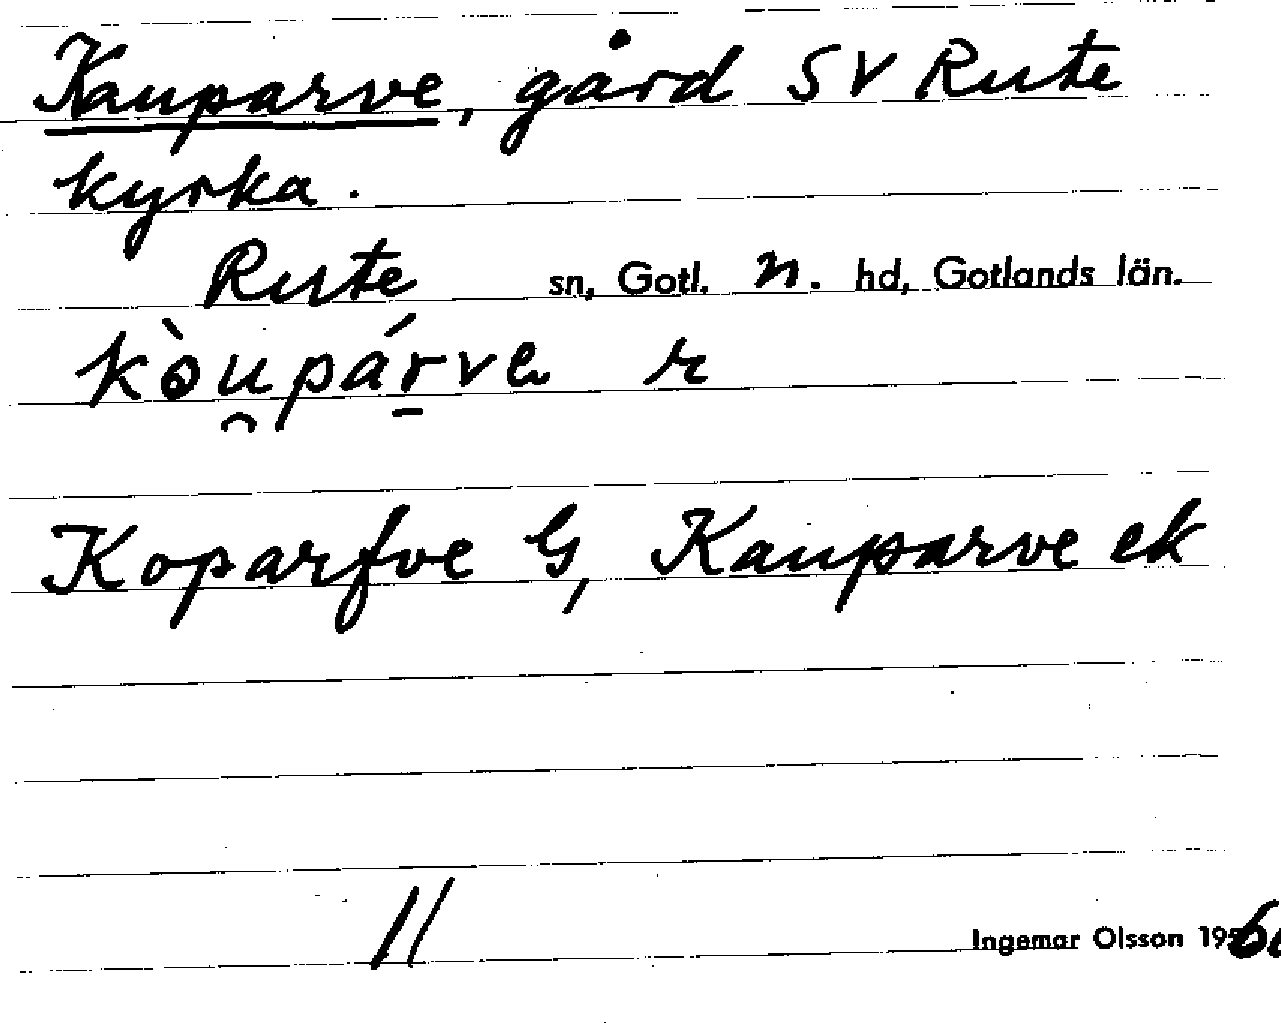 Kauparve, gård SV Rute
kyrka.
Rute sn, Gotl. n. hd, Gotlands län.
kòu̯pár̠ve r
Koparfve G, Kauparve ek
11
Ingemar Olsson 19